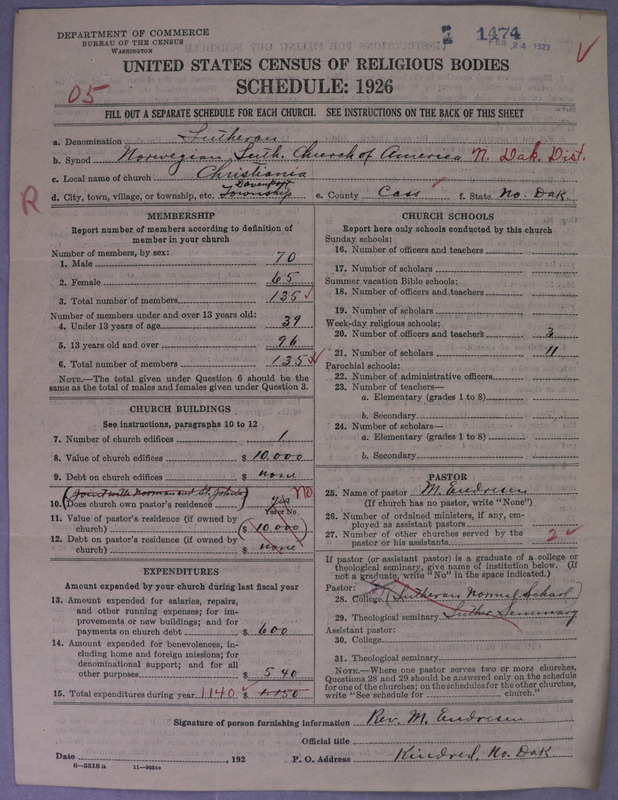 DEPARTMENT OF COMMERCE
BUREAU OF THE CENSUS
WASHINGTON
1474
FEB 24 1927
UNITED STATES CENSUS OF RELIGIOUS BODIES
SCHEDULE: 1926
05
FILL OUT A SEPARATE SCHEDULE FOR EACH CHURCH. SEE INSTRUCTIONS ON THE BACK OF THIS SHEET
a. Denomination Lutheran
b. Synod Norwegian Luth. Church of America N. Dak. Dist.
c. Local name of church Christiania
R
d. City, town, village, or township, etc. Davenport Township e. County Cass f. State No. Dak.
MEMBERSHIP
Report number of members according to definition of
member in your church
Number of members, by sex:
1. Male 70
2. Female 65
3. Total number of members 135
Number of members under and over 13 years old:
4. Under 13 years of age 39
5. 13 years old and over 96
6. Total number of members 135
NOTE.—The total given under Question 6 should be the
same as the total of males and females given under Question 3.
CHURCH BUILDINGS
See instructions, paragraphs 10 to 12
7. Number of church edifices 1
8. Value of church edifices $ 10,000
9. Debt on church edifices $ none
(Joint with Norman and St. Johns)
10. Does church own pastor's residence yes No
Yes or No
11. Value of pastor's residence (if owned by
church) $ (10,000)
12. Debt on pastor's residence (if owned by
church) $ none
EXPENDITURES
Amount expended by your church during last fiscal year
13. Amount expended for salaries, repairs,
and other running expenses; for im-
provements or new buildings; and for
payments on church debt $ 600
14. Amount expended for benevolences, in-
cluding home and foreign missions; for
denominational support; and for all
other purposes $ 540
15. Total expenditures during year 1140 $ 1,150
CHURCH SCHOOLS
Report here only schools conducted by this church
Sunday schools:
16. Number of officers and teachers
17. Number of scholars
Summer vacation Bible schools:
18. Number of officers and teachers
19. Number of scholars
Week-day religious schools:
20. Number of officers and teachers 3
21. Number of scholars 11
Parochial schools:
22. Number of administrative officers
23. Number of teachers—
a. Elementary (grades 1 to 8)
b. Secondary
24. Number of scholars—
a. Elementary (grades 1 to 8)
b. Secondary
PASTOR
25. Name of pastor M. Endresen
(If church has no pastor, write "None")
26. Number of ordained ministers, if any, em-
ployed as assistant pastors
27. Number of other churches served by the
pastor or his assistants 2
If pastor (or assistant pastor) is a graduate of a college or
theological seminary, give name of institution below. (If
not a graduate, write "No" in the space indicated.)
Pastor:
28. College (Lutheran Normal School)
29. Theological seminary Luther Seminary
Assistant pastor:
30. College
31. Theological seminary
NOTE.—Where one pastor serves two or more churches,
Questions 28 and 29 should be answered only on the schedule
for one of the churches; on the schedules for the other churches,
write "See schedule for church."
Signature of person furnishing information Rev. M. Endresen
Official title
Date , 192 P. O. Address Kindred, No. Dak.
8—5518a 11—9054